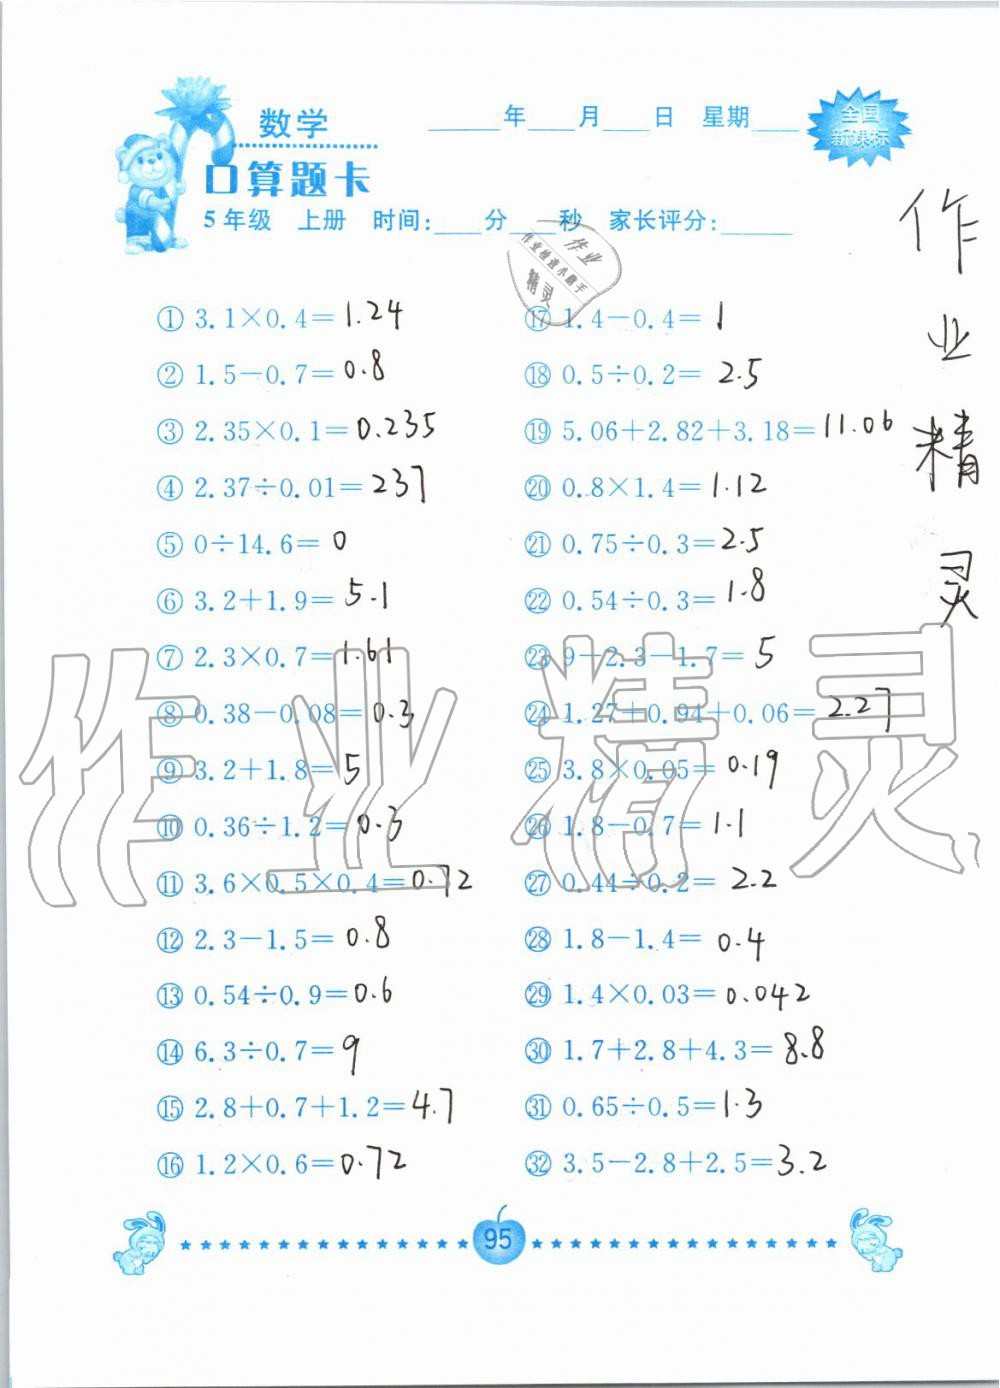 数学
____年____月____日 星期____
全国
新课标
口算题卡
5年级 上册 时间:____分____秒 家长评分:____
作业
作业检查小助手
精灵
作业精灵
① 3.1×0.4=1.24
② 1.5-0.7=0.8
③ 2.35×0.1=0.235
④ 2.37÷0.01=237
⑤ 0÷14.6=0
⑥ 3.2+1.9=5.1
⑦ 2.3×0.7=1.61
⑧ 0.38-0.08=0.3
⑨ 3.2+1.8=5
⑩ 0.36÷1.2=0.3
⑪ 3.6×0.5×0.4=0.72
⑫ 2.3-1.5=0.8
⑬ 0.54÷0.9=0.6
⑭ 6.3÷0.7=9
⑮ 2.8+0.7+1.2=4.7
⑯ 1.2×0.6=0.72
⑰ 1.4-0.4=1
⑱ 0.5÷0.2=2.5
⑲ 5.06+2.82+3.18=11.06
⑳ 0.8×1.4=1.12
㉑ 0.75÷0.3=2.5
㉒ 0.54÷0.3=1.8
㉓ 9-2.3-1.7=5
㉔ 1.27+0.94+0.06=2.27
㉕ 3.8×0.05=0.19
㉖ 1.8-0.7=1.1
㉗ 0.44÷0.2=2.2
㉘ 1.8-1.4=0.4
㉙ 1.4×0.03=0.042
㉚ 1.7+2.8+4.3=8.8
㉛ 0.65÷0.5=1.3
㉜ 3.5-2.8+2.5=3.2
作业精灵
95